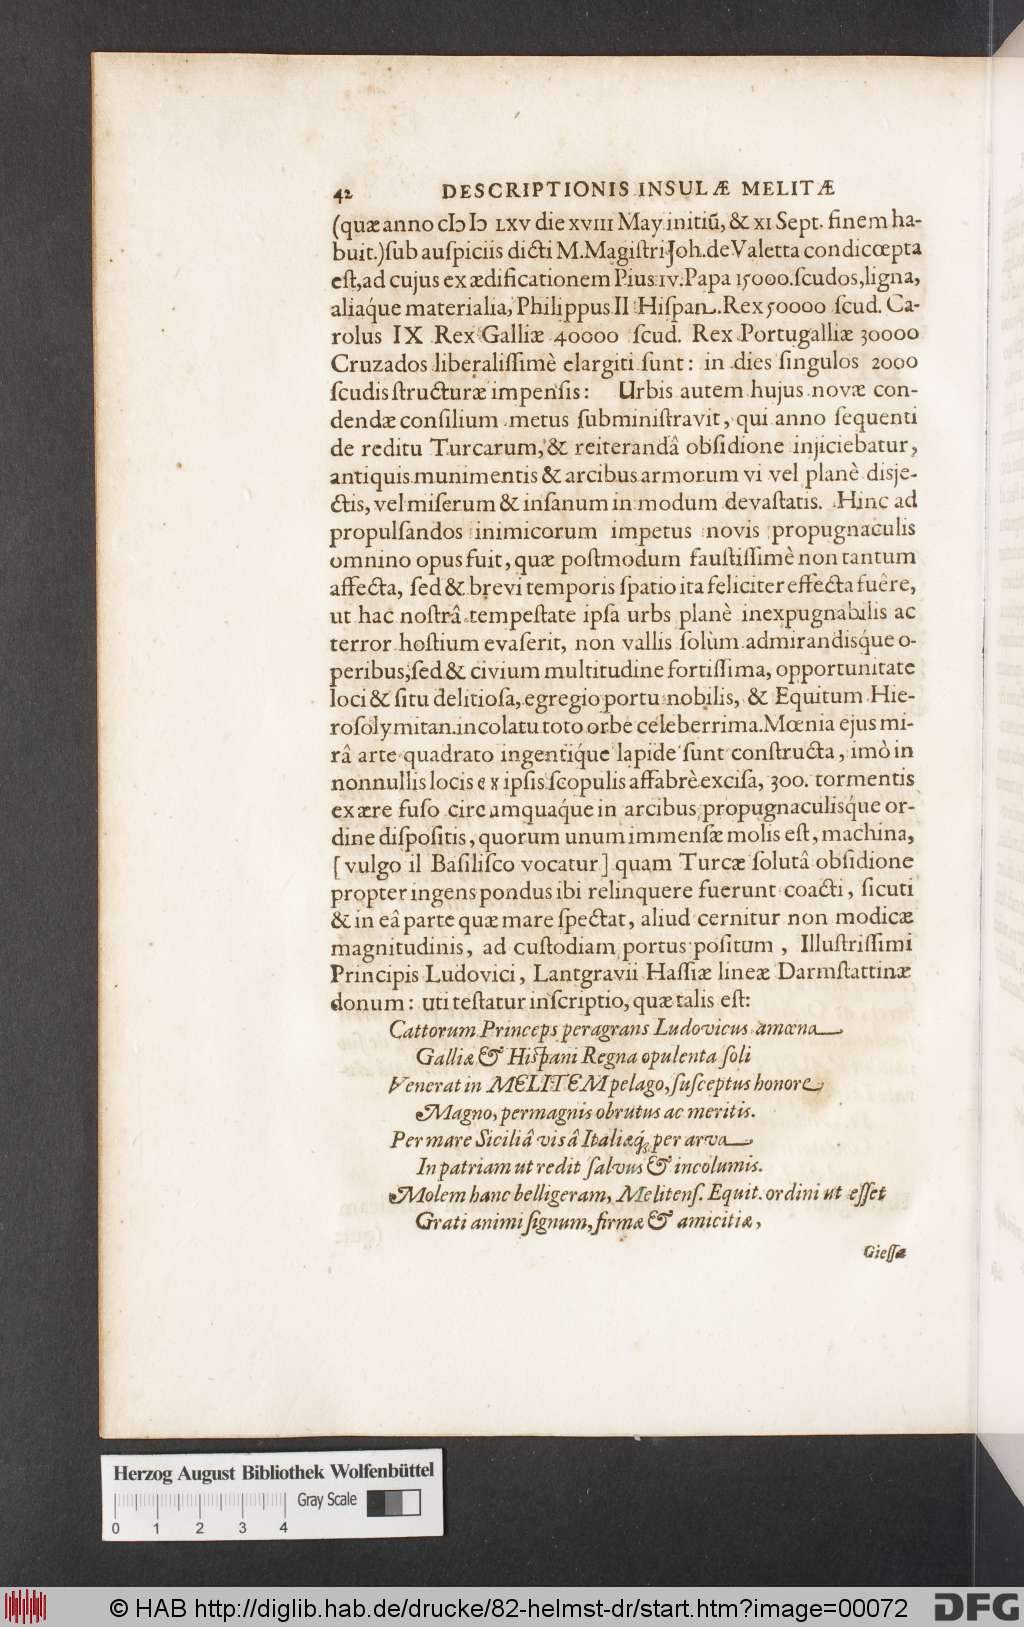 42 DESCRIPTIONIS INSULÆ MELITÆ
(quæ anno cIↄ Iↄ LXV die XVIII May initiũ, & XI Sept. finem ha-
buit.) ſub auſpiciis dicti M. Magiſtri Joh. de Valetta condi cœpta
eſt, ad cujus exædificationem Pius IV. Papa 15000. ſcudos, ligna,
aliaq́ue materialia, Philippus II Hiſpan. Rex 50000 ſcud. Ca-
rolus IX Rex Galliæ 40000 ſcud. Rex Portugalliæ 30000
Cruzados liberaliſſimè elargiti ſunt: in dies ſingulos 2000
ſcudis ſtructuræ impenſis: Urbis autem hujus novæ con-
dendæ conſilium metus ſubminiſtravit, qui anno ſequenti
de reditu Turcarum, & reiterandâ obſidione injiciebatur,
antiquis munimentis & arcibus armorum vi vel planè disje-
ctis, vel miſerum & inſanum in modum devaſtatis. Hinc ad
propulſandos inimicorum impetus novis propugnaculis
omnino opus fuit, quæ poſtmodum fauſtiſſimè non tantum
affecta, ſed & brevi temporis ſpatio ita feliciter effecta fuêre,
ut hac noſtrâ tempeſtate ipſa urbs planè inexpugnabilis ac
terror hoſtium evaſerit, non vallis ſolùm admirandisq́ue o-
peribus, ſed & civium multitudine fortiſſima, opportunitate
loci & ſitu delitioſa, egregio portu nobilis, & Equitum Hie-
roſolymitan. incolatu toto orbe celeberrima. Mœnia ejus mi-
râ arte quadrato ingentiq́ue lapide ſunt conſtructa, imò in
nonnullis locis ex ipſis ſcopulis affabrè exciſa, 300. tormentis
ex ære fuſo circumquaq́ue in arcibus propugnaculisq́ue or-
dine diſpoſitis, quorum unum immenſæ molis eſt, machina,
[vulgo il Baſiliſco vocatur] quam Turcæ ſolutâ obſidione
propter ingens pondus ibi relinquere fuerunt coacti, ſicuti
& in eâ parte quæ mare ſpectat, aliud cernitur non modicæ
magnitudinis, ad cuſtodiam portus poſitum, Illuſtriſſimi
Principis Ludovici, Lantgravii Haſſiæ lineæ Darmſtattinæ
donum: uti teſtatur inſcriptio, quæ talis eſt:
Cattorum Princeps peragrans Ludovicus amœna
Galliæ & Hiſpani Regna opulenta ſoli
Venerat in MELITEM pelago, ſuſceptus honore
Magno, permagnis obrutus ac meritis.
Per mare Siciliâ visâ Italiæq́; per arva
In patriam ut redit ſalvus & incolumis.
Molem hanc belligeram, Melitenſ. Equit. ordini ut eſſet
Grati animi ſignum, firmæ & amicitiæ,
Gieſſæ
Herzog August Bibliothek Wolfenbüttel
Gray Scale
0 1 2 3 4
© HAB http://diglib.hab.de/drucke/82-helmst-dr/start.htm?image=00072
DFG